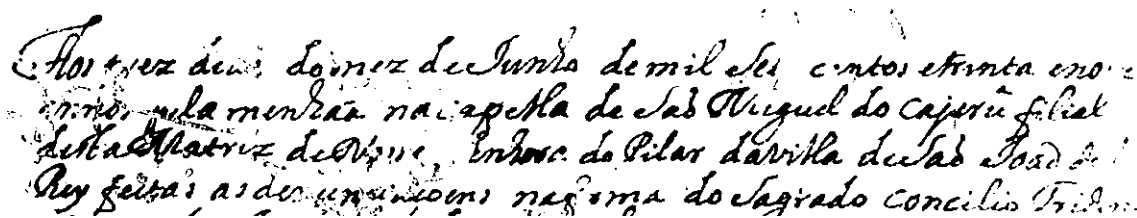 Aos trez dias do mez de Junho de mil e Sete centos e trinta e nove
annos pela menhãa na capella de São Miguel do Cajerú filial
desta Matriz de Nossa Senhora do Pilar da villa de São João de
Rey feitas as denunciaçoens na forma do Sagrado Concilio Triden